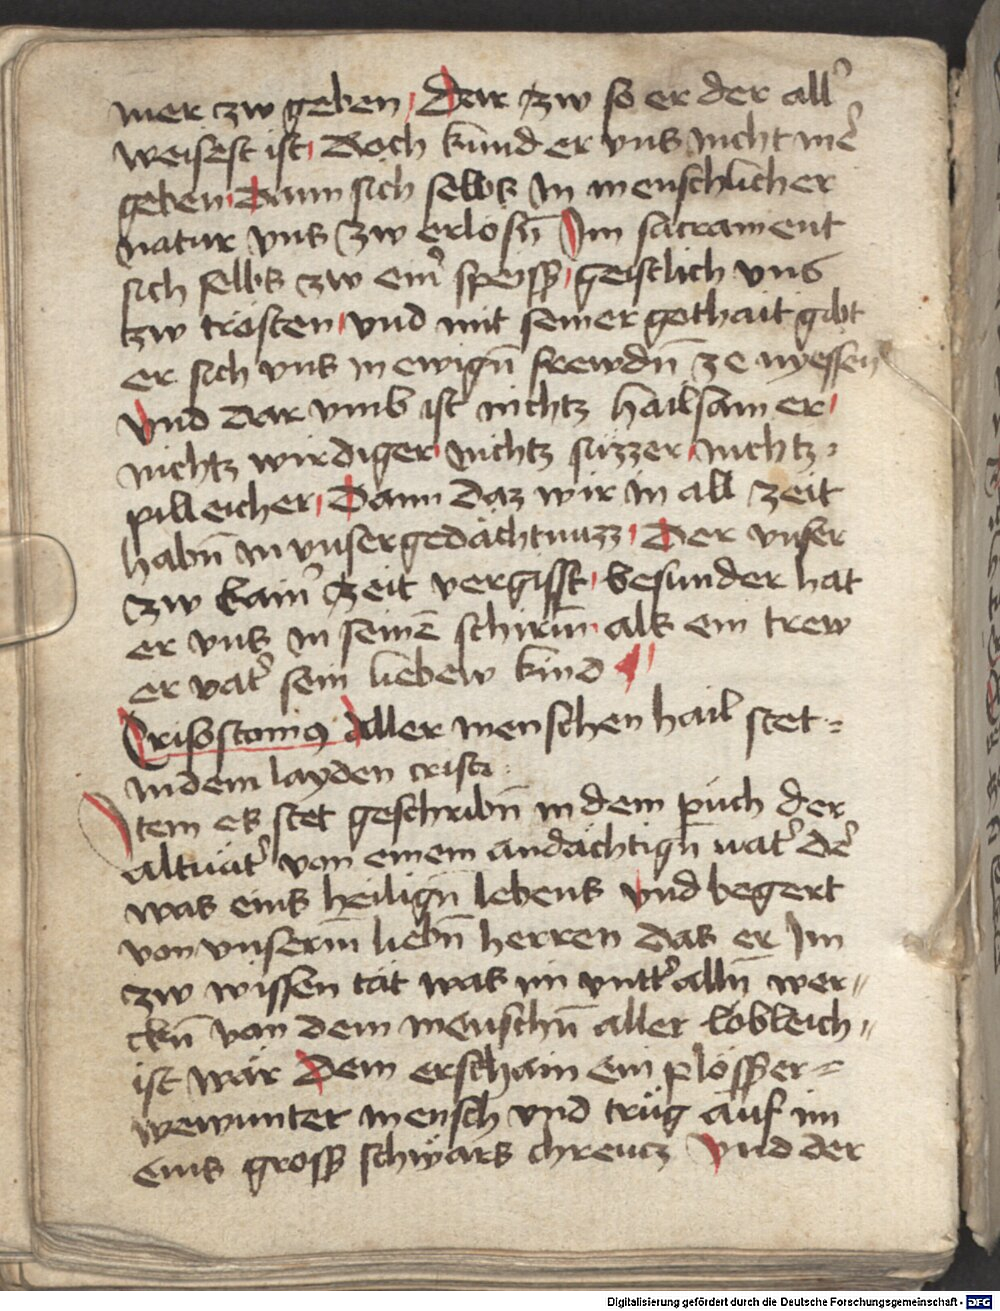 mer zw geben Dar zw so er der all'
weisest ist Doch kund er vns nicht me'
geben Dann sich selbs In menschlicher
natur vns zw erlosn̄ Im sacrament
sich selbs zw eim' speiss geistlich vns
tzw trösten vnd mit seiner gothait gibt
er sich vns in ewign̄ frewdn̄ ze nyessen
Vnd dar vmb ist nichtz hailsamer
nichtz wirdiger nichtz süzzer nichtz
pilleicher Dann daz wir in all zeit
habn̄ in vnser gedächtnuzz Der vnser
zw kain' zeit vergisst besunder hat
er vns in seinē schirm̄ als ein trew
er vat' sein liebew kind
Crisostomus Aller menschen hail stet =
In dem layden cristi
Item es stet geschribn̄ in dem püch der
altuät' von einem andächtign̄ uat' de'
was eins heilign̄ lebens vnd begert
von vnserm̄ liebn̄ herren das er Im
zw wissen tät was im vntt' alln̄ wer=
ckn̄ von dem menschn̄ aller lobleich=
ist wär Dem erschain ein plosser =
wewunter mensch vnd trüg auf im
eins gross schwärs chreucz Vnd der
Digitalisierung gefördert durch die Deutsche Forschungsgemeinschaft - DFG